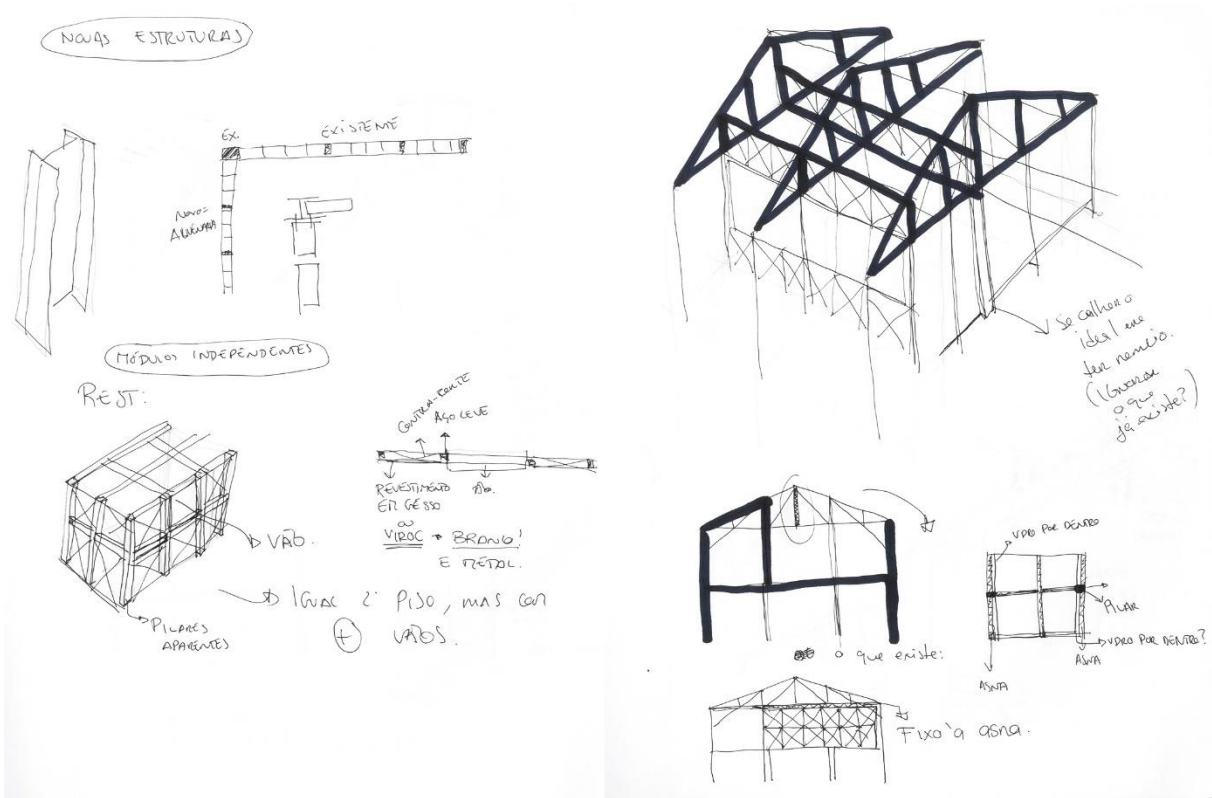 NOVAS ESTRUTURAS
EX.
EXISTENTE
NOVO=
ALVENARIA
MÓDULOS INDEPENDENTES
REST:
CONTRA-
AÇO LEVE
REVESTIMENTO
EM GESSO
ou
VIROC → BRANCO!
E METAL.
VÃO.
IGUAL 2º PISO, MAS COM
+ VÃOS.
PILARES
APARENTES
Se calhar o
ideal era
ter
(IGNORAR
o que
já existe?)
VIDRO POR DENTRO
PILAR
VIDRO POR DENTRO?
ASNA
ASNA
o que existe:
Fixo à asna.